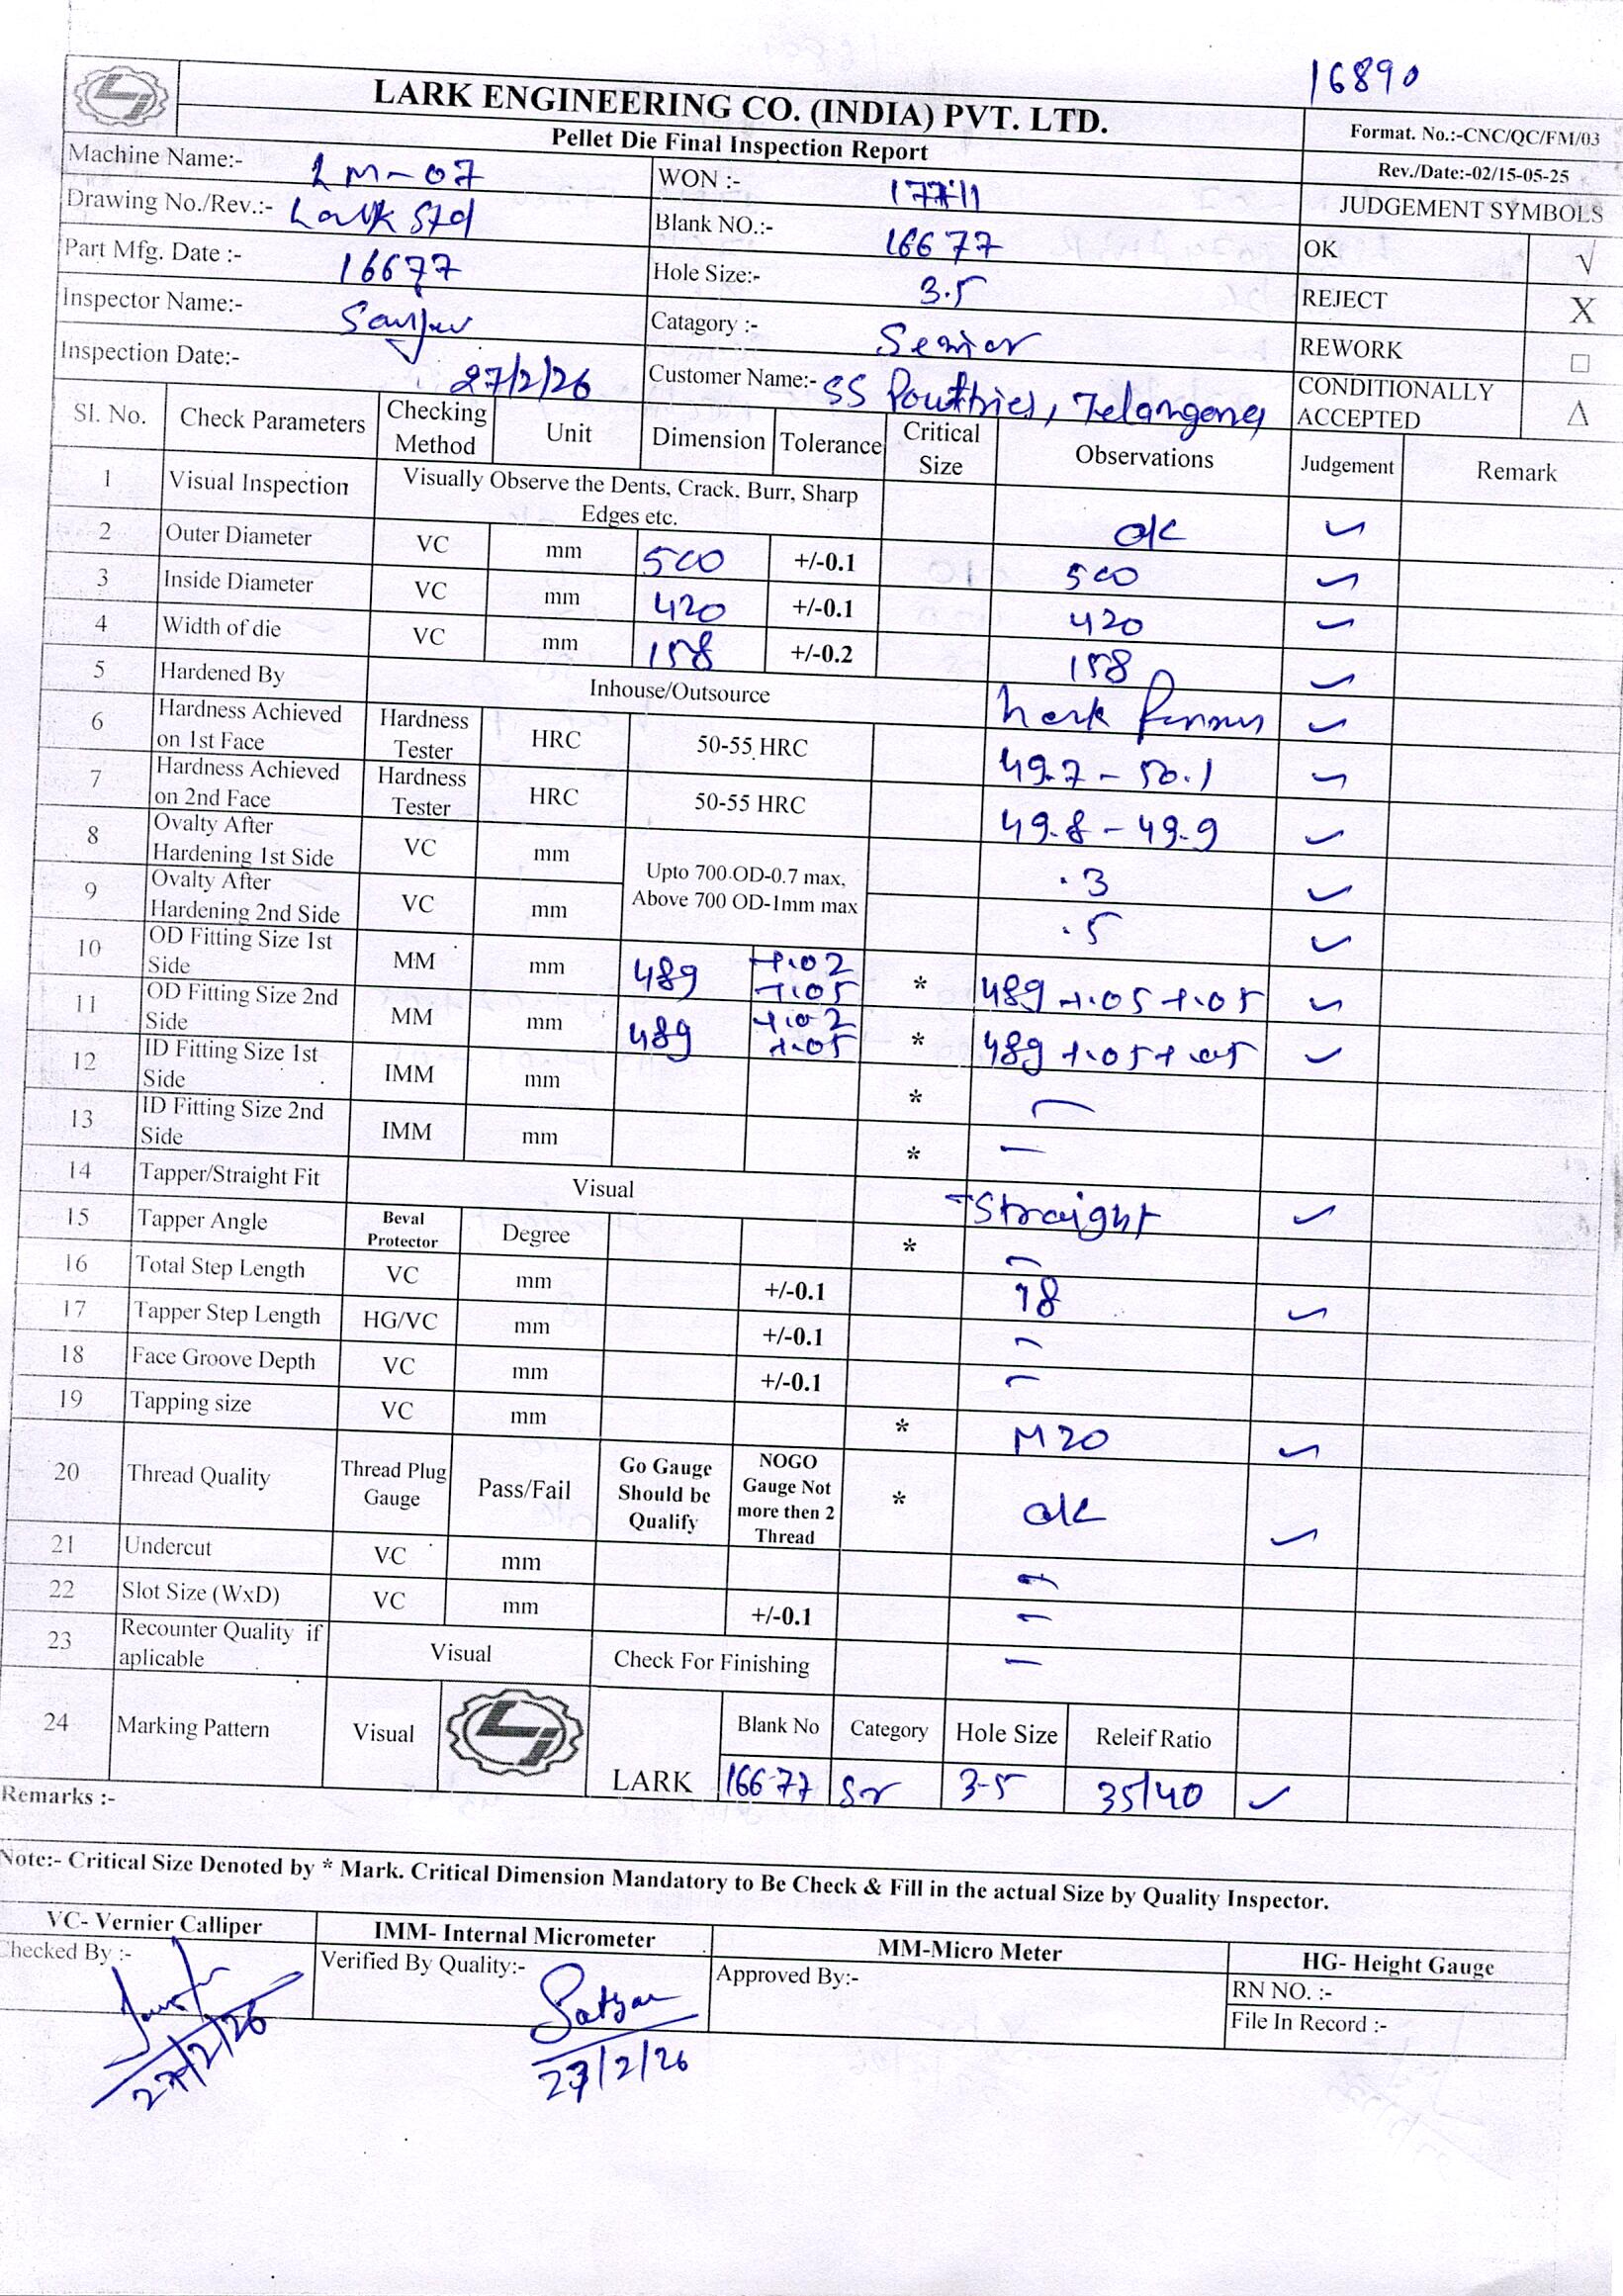 16890
LARK ENGINEERING CO. (INDIA) PVT. LTD.
Format. No.:-CNC/QC/FM/03
Pellet Die Final Inspection Report
Rev./Date:-02/15-05-25
Machine Name:- LM-07 WON :-
JUDGEMENT SYMBOLS
Drawing No./Rev.:- Lark Std Blank NO.:- 16677 OK √
Part Mfg. Date :- 16677 Hole Size:- 3.5 REJECT X
Inspector Name:- Catagory :- Senior REWORK □
Inspection Date:- 27/2/26 Customer Name:- SS Poultries, Telangana CONDITIONALLY ACCEPTED Δ
Sl. No. Check Parameters Checking Method Unit Dimension Tolerance Critical Size Observations Judgement Remark
1 Visual Inspection Visually Observe the Dents, Crack. Burr, Sharp Edges etc. ok ✓
2 Outer Diameter VC mm 500 +/-0.1 500 ✓
3 Inside Diameter VC mm 420 +/-0.1 420 ✓
4 Width of die VC mm 158 +/-0.2 158 ✓
5 Hardened By Inhouse/Outsource Lark ✓
6 Hardness Achieved on 1st Face Hardness Tester HRC 50-55 HRC 49.7 - 50.1 ✓
7 Hardness Achieved on 2nd Face Hardness Tester HRC 50-55 HRC 49.8 - 49.9 ✓
8 Ovalty After Hardening 1st Side VC mm Upto 700 OD-0.7 max, Above 700 OD-1mm max .3 ✓
9 Ovalty After Hardening 2nd Side VC mm .5 ✓
10 OD Fitting Size 1st Side MM mm 489 +.02 +.05 * 489 +.05 +.05 ✓
11 OD Fitting Size 2nd Side MM mm 489 +.02 +.05 * 489 +.05 +.05 ✓
12 ID Fitting Size 1st Side IMM mm * —
13 ID Fitting Size 2nd Side IMM mm * —
14 Tapper/Straight Fit Visual Straight ✓
15 Tapper Angle Beval Protector Degree * —
16 Total Step Length VC mm +/-0.1 18 ✓
17 Tapper Step Length HG/VC mm +/-0.1 —
18 Face Groove Depth VC mm +/-0.1 —
19 Tapping size VC mm * M20 ✓
20 Thread Quality Thread Plug Gauge Pass/Fail Go Gauge Should be Qualify NOGO Gauge Not more then 2 Thread * ok ✓
21 Undercut VC mm —
22 Slot Size (WxD) VC mm +/-0.1 —
23 Recounter Quality if aplicable Visual Check For Finishing —
24 Marking Pattern Visual LARK Blank No Category Hole Size Releif Ratio
16677 Sr 3.5 35/40 ✓
Remarks :-
Note:- Critical Size Denoted by * Mark. Critical Dimension Mandatory to Be Check & Fill in the actual Size by Quality Inspector.
VC- Vernier Calliper IMM- Internal Micrometer MM-Micro Meter HG- Height Gauge
Checked By :- Verified By Quality:- Approved By:- RN NO. :-
File In Record :-
27/2/26 27/2/26